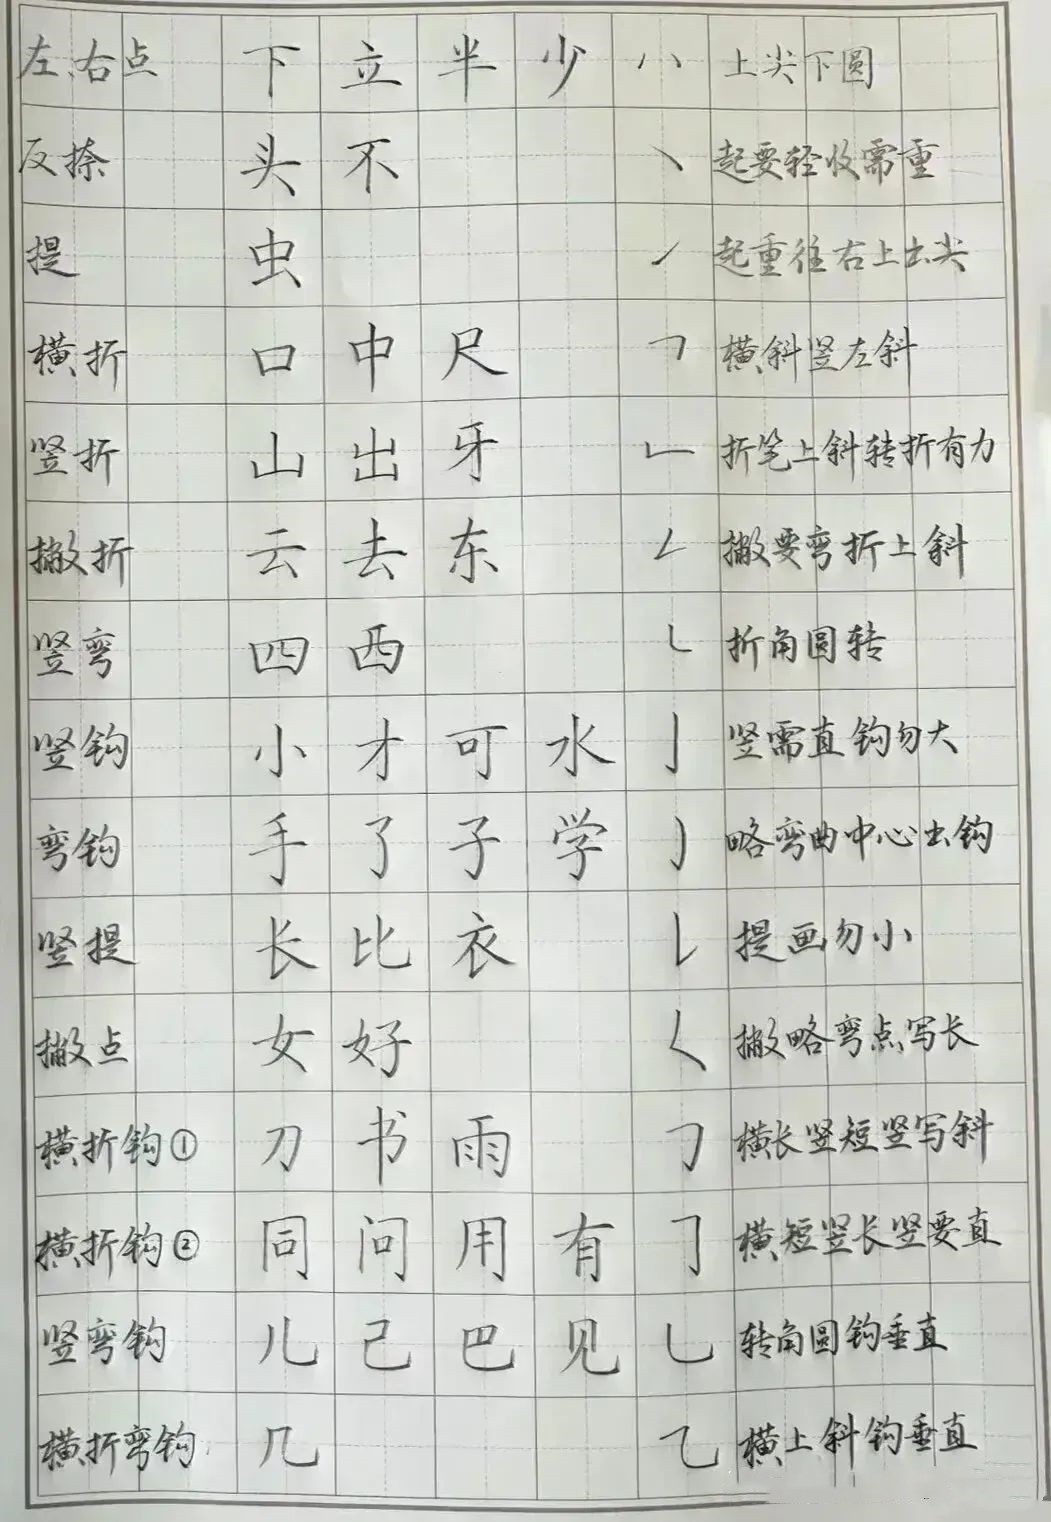 左右点 下 立 半 少 丶丶 上尖下圆
反捺 头 不 ㇏ 起要轻收需重
提 虫 ㇀ 起重往右上出尖
横折 口 中 尺 ㇕ 横斜竖左斜
竖折 山 出 牙 ㇗ 折笔上斜转折有力
撇折 云 去 东 ㇜ 撇要弯折上斜
竖弯 四 西 ㇄ 折角圆转
竖钩 小 才 可 水 亅 竖需直钩勿大
弯钩 手 了 子 学 ㇁ 略弯曲中心出钩
竖提 长 比 衣 ㇙ 提画勿小
撇点 女 好 ㇛ 撇略弯点写长
横折钩① 刀 书 雨 ㇆ 横长竖短竖写斜
横折钩② 同 问 用 有 ㇆ 横短竖长竖要直
竖弯钩 儿 己 巴 见 乚 转角圆钩垂直
横折弯钩 几 ㇈ 横上斜钩垂直